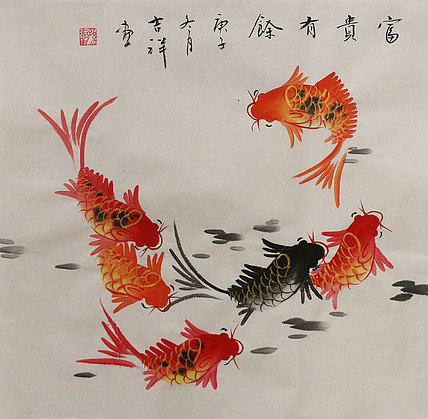 富貴有餘
庚子
月
吉祥
畫